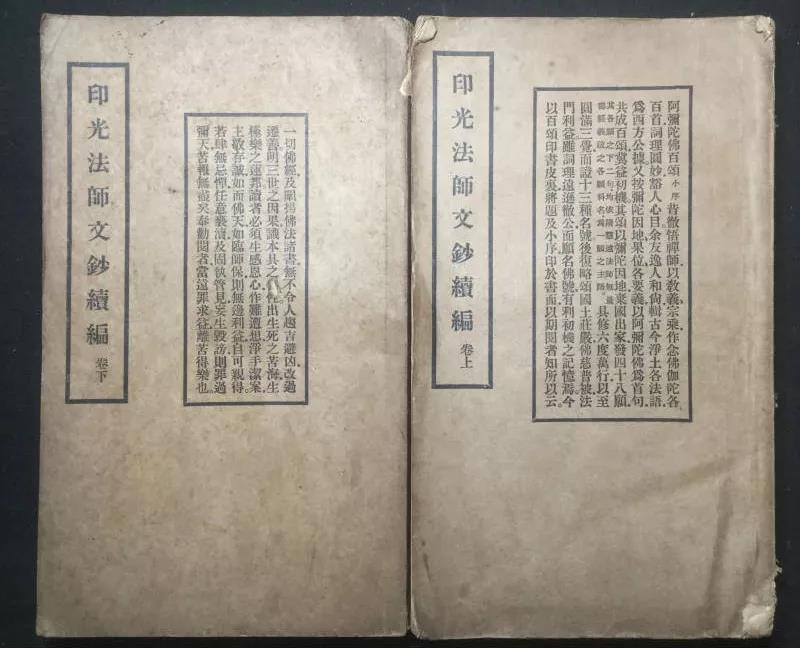 印光法師文鈔續編 卷上
阿彌陀佛百頌 小序 昔徹悟禪師以敎義宗乘作念佛伽陀各
百首詞理圓妙豁人心目余友逸人和尙輯古今淨土各法語
爲西方公據又按彌陀因地果位各要義以阿彌陀佛爲首句
共成百頌冀益初機其頌以彌陀因地棄國出家發四十八願
其各願之下二句均依隋慧遠法師無量
壽經義疏之各願科名爲一願之主腦。具修六度萬行以至
圓滿三覺而證十三種名號後復略頌國土莊嚴佛慈普被法
門利益雖詞理遠遜徹公而願名佛號有利初機之記憶焉今
以百頌印書皮裏將題及小序印於書面以期閱者知所以云。
印光法師文鈔續編 卷下
一切佛經及闡揚佛法諸書無不令人趨吉避凶改過
遷善明三世之因果識本具之性出生死之苦海生
極樂之蓮邦讀者必須生感恩心作難遭想淨手潔案
主敬存誠如面佛天如臨師保則無邊利益自可親得
若肆無忌憚任意褻瀆及固執管見妄生毀謗則罪過
彌天苦報無盡矣奉勸閱者當遠罪求益離苦得樂也。